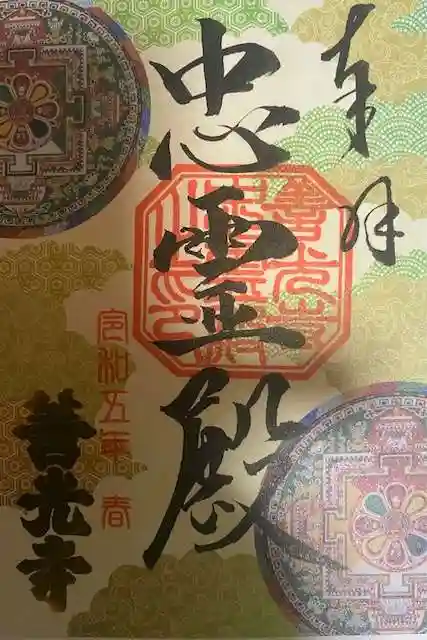 奉拝
忠霊殿
令和五年 春
善光寺